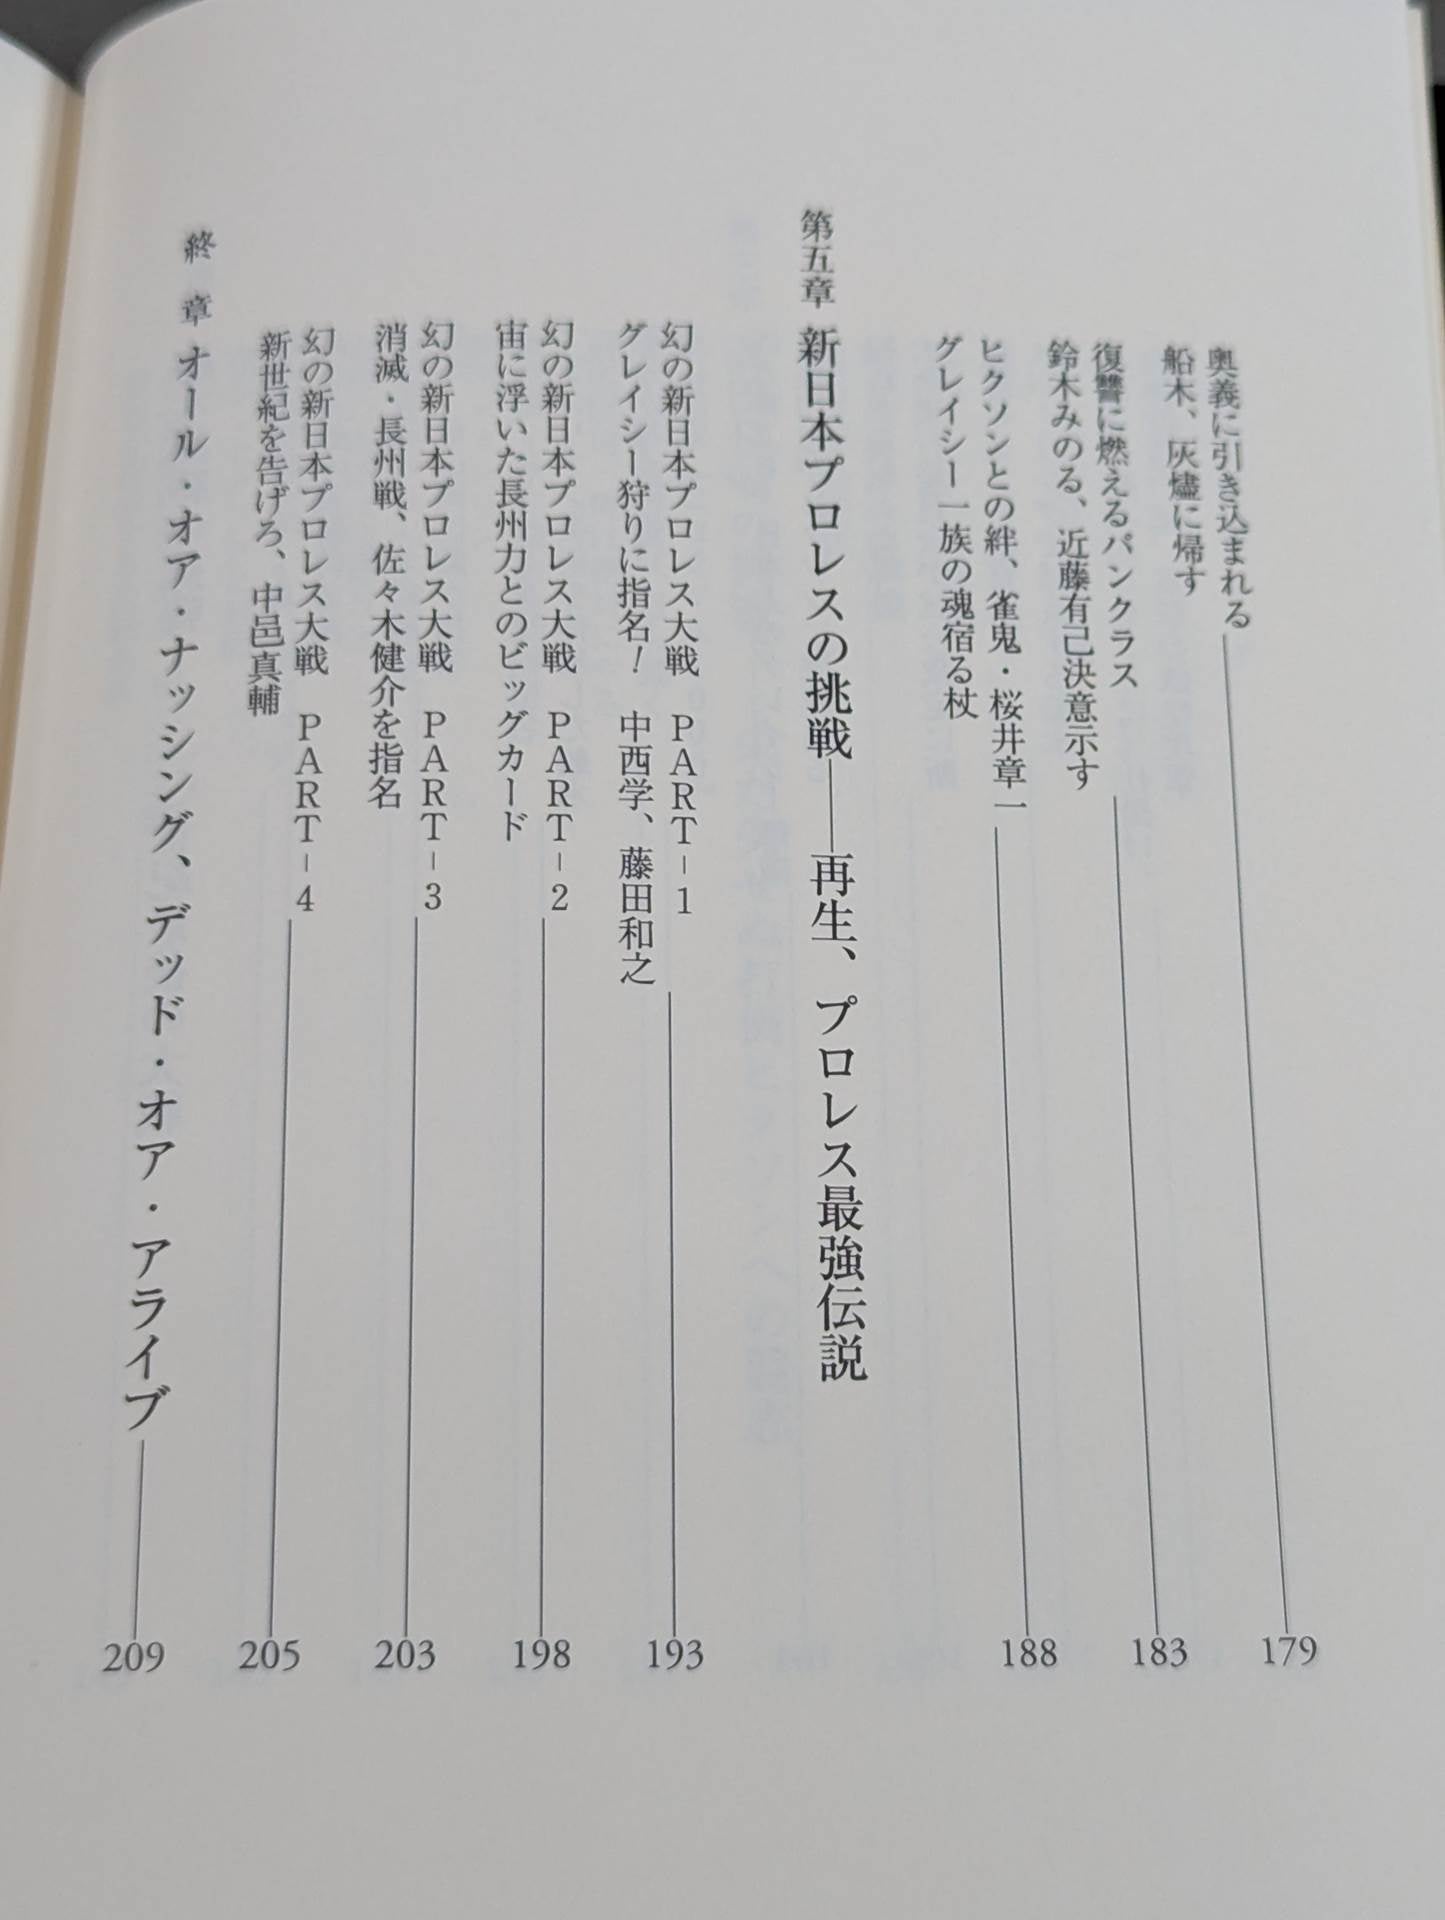 奥義に引き込まれる
船木、灰燼に帰す
179
復讐に燃えるパンクラス
鈴木みのる、近藤有己決意示す
183
ヒクソンとの絆、雀鬼・桜井章一
グレイシー一族の魂宿る杖
188
第五章 新日本プロレスの挑戦――再生、プロレス最強伝説
幻の新日本プロレス大戦 PART-1
グレイシー狩りに指名! 中西学、藤田和之
193
幻の新日本プロレス大戦 PART-2
宙に浮いた長州力とのビッグカード
198
幻の新日本プロレス大戦 PART-3
消滅・長州戦、佐々木健介を指名
203
幻の新日本プロレス大戦 PART-4
新世紀を告げろ、中邑真輔
205
終 章 オール・オア・ナッシング、デッド・オア・アライブ
209